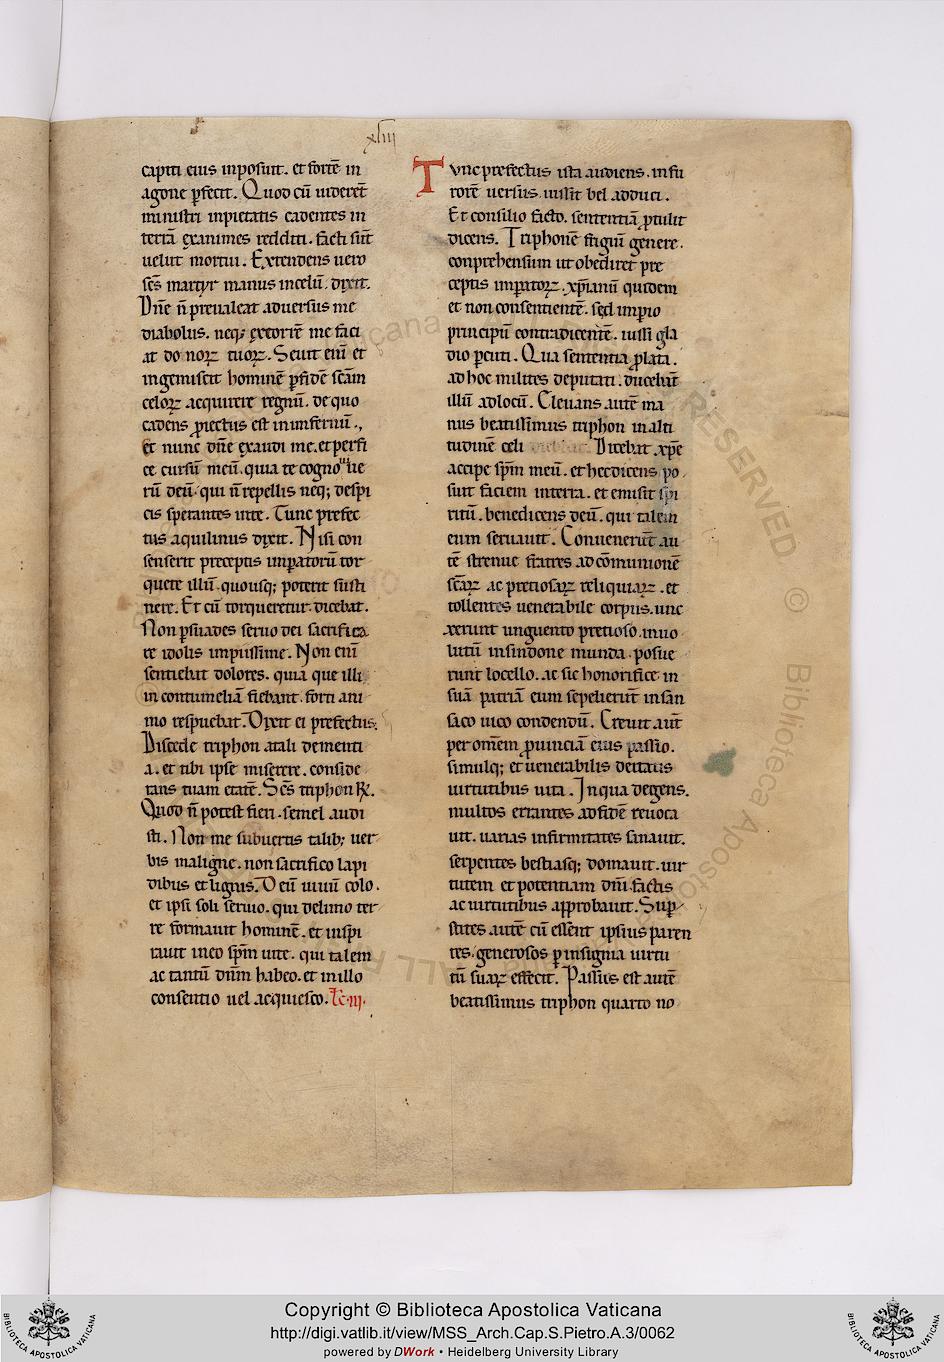 xliii
capiti eius inposuit. et fortē in
agone p̄fecit. Quod cū uiderēt
ministri inpietatis cadentes in
terrā exanimes redditi. facti sūt
uelut mortui. Extendens uero
sc̄s martyr manus incelū. dixit.
Dn̄e n̄ preualeat aduersus me
diabolus. neq; exterrē me faci
at do noꝝ tuoꝝ. Seuit enī et
ingemiscit hominē p̄fidē sc̄am
celoꝝ acquirere regnū. de quo
cadens ꝓiectus est ininfernū.,
et nunc dn̄e exaudi me. et perfi
ce cursū meū. quia te cogno ue
rū deū. qui n̄ repellis neq; despi
cis sperantes inte. Tunc prefec
tus aquilinus dixit. Nisi con
senserit preceptis imꝑatorū tor
quete illū. quousq; poterit susti
nere. Et cū torqueretur. dicebat.
Non ꝑsuades seruo dei sacrifica
re idolis impiissime. Non enī
sentiebat dolores. quia que illi
in contumeliā fiebant. forti ani
mo respuebat. Dixit ei prefectus.
Discede triphon atali dementi
a. et tibi ipse miserere. conside
rans tuam etatē. Sc̄s triphon ℟.
Quod n̄ potest fieri. semel audi
sti. Non me subuertis talib; uer
bis maligne. non sacrifico lapi
dibus et lignis. Deū uiuū colo.
et ipsi soli seruio. qui delimo ter
re formauit hominē. et inspi
rauit ineo sp̄m uite. qui talem
ac tantū dn̄m habeo. et inillo
consentio uel acquiesco. Lc̄.iij.
Tunc prefectus ista audiens. infu
rorē uersus. iussit bel adduci.
Et consilio facto. sententiā ꝓtulit
dicens. Triphonē frigiū genere.
conprehensum ut obediret pre
ceptis imꝑatoꝝ. xp̄ianū quidem
et non consentientē. sed imꝑio
principū contradicentē. iussi gla
dio ꝑcuti. Qua sententia ꝓlata.
ad hoc milites deputati. ducebāt
illū adlocū. Eleuans autē ma
nus beatissimus triphon inalti
tudinē celi Dicebat. xp̄e
accipe sp̄m meū. et hec dicens po
suit faciem interra. et emisit spi
ritū. benedicens deū. qui talem
eum seruauit. Conuenerūt au
tē strenue fratres ad cōmunionē
sc̄aꝝ ac pretiosaꝝ reliquiaꝝ. et
tollentes uenerabile corpus. unc
xerunt unguento pretioso. inuo
lutū insindone munda. posue
runt locello. ac sic honorifice in
suā patriā eum sepelierūt insan
saco uico condendū. Creuit aūt
per omēm ꝓuinciā eius passio.
simulq; et uenerabilis deitatis
uirtutibus uita. Inqua degens.
multos errantes adfidē reuoca
uit. uarias infirmitates sanauit.
serpentes bestiasq; domauit. uir
tutem et potentiam dn̄i. factis
ac uirtutibus approbauit. Suꝑ
stites autē cū essent ipsius paren
tes. generosos ꝑ insignia uirtu
tū suaꝝ effecit. Passus est autē
beatissimus triphon quarto no
Copyright © Biblioteca Apostolica Vaticana
http://digi.vatlib.it/view/MSS_Arch.Cap.S.Pietro.A.3/0062
powered by DWork • Heidelberg University Library